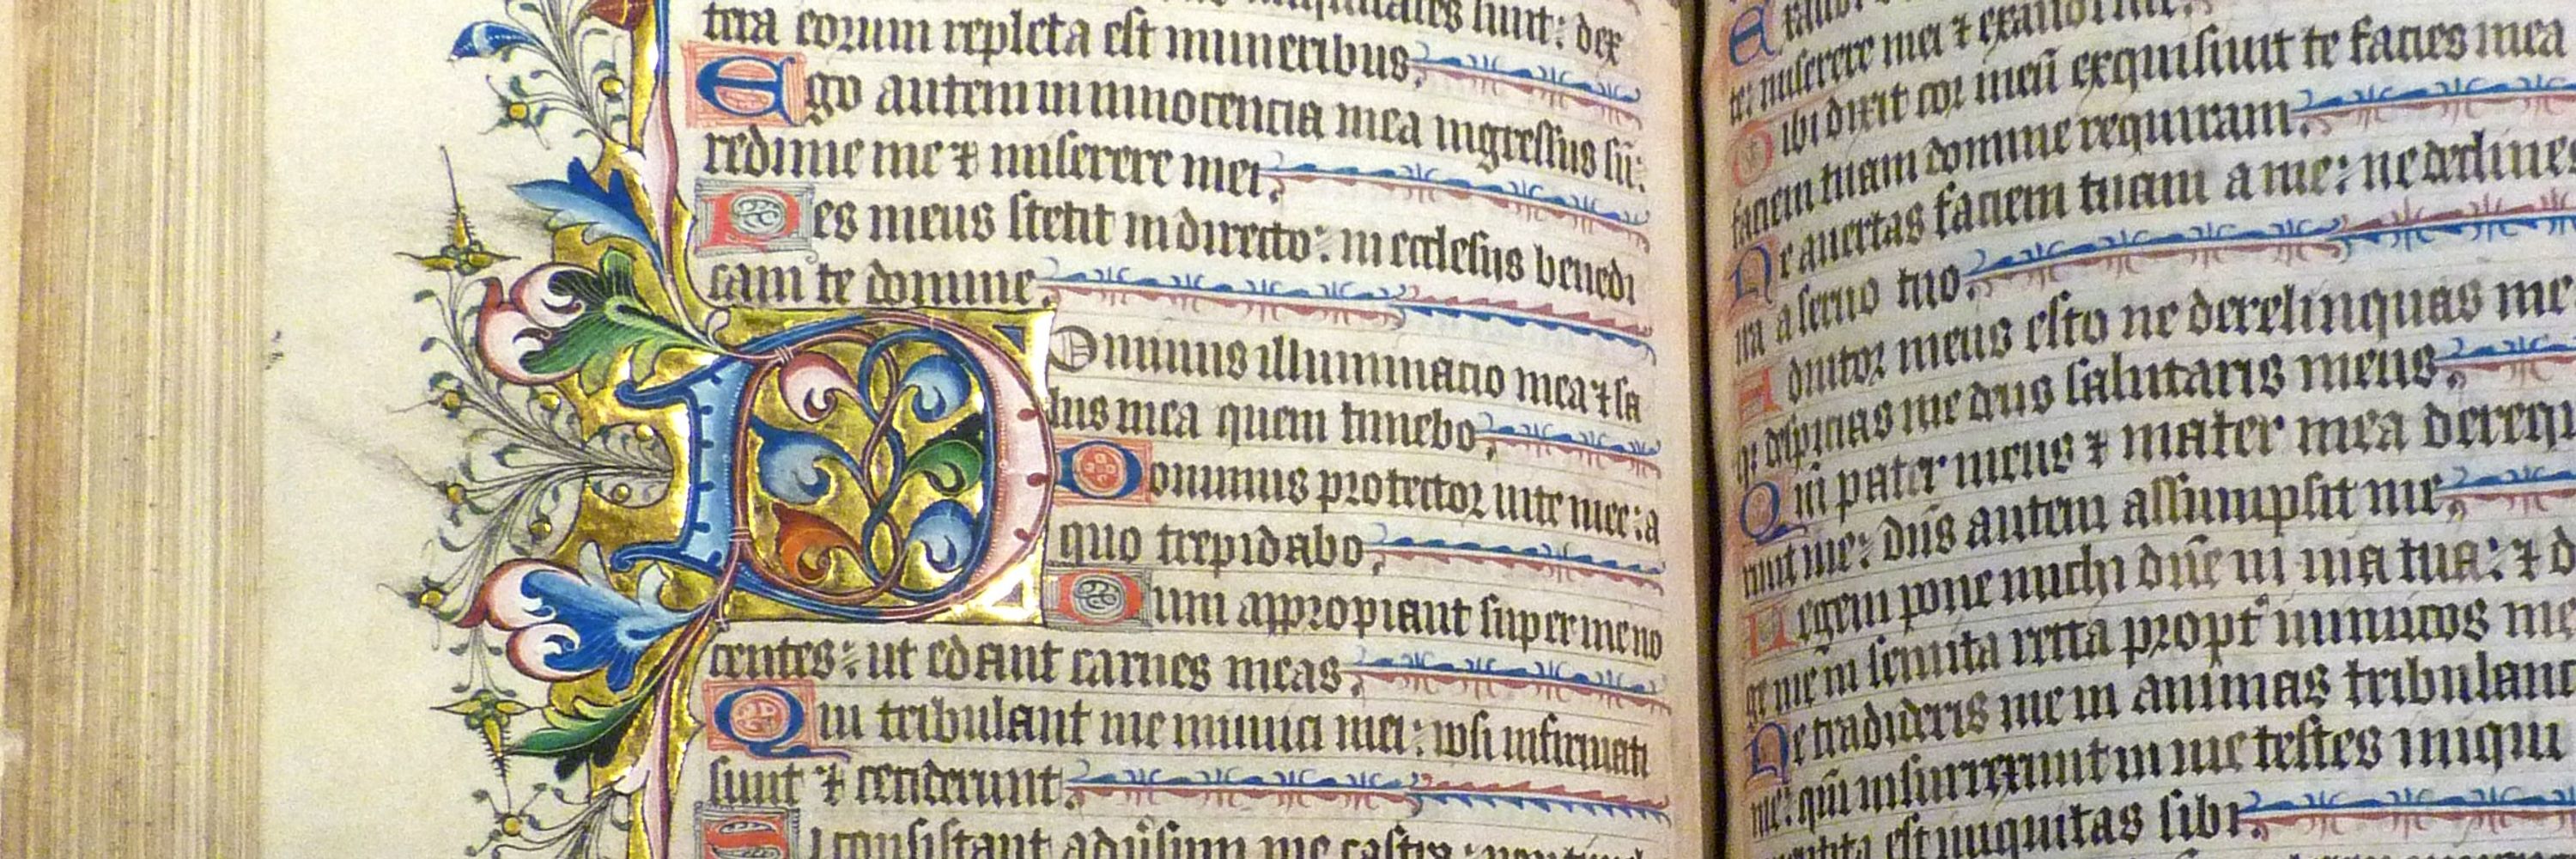 iniquitates sunt: dex
tera eorum repleta est muneribus.
Ego autem in innocencia mea ingressus sū:
redime me ⁊ miserere mei.
Pes meus stetit in directo: in ecclesiis benedi
cam te domine.
Dominus illuminacio mea ⁊ sa
lus mea quem timebo.
Dominus protector uite mee: a
quo trepidabo.
Dum appropiant super me no
centes: ut edant carnes meas.
Qui tribulant me inimici mei: ipsi infirmati
sunt ⁊ ceciderunt.
Si consistant adūsum me castra: non
Exaudi
te: miserere mei ⁊ exaudi me.
Tibi dixit cor meū exquisiuit te facies mea
faciem tuam domine requiram.
Ne auertas faciem tuam a me: ne declines
ira a seruo tuo.
Adiutor meus esto ne derelinquas me
despicias me deus salutaris meus.
Qm̄ pater meus ⁊ mater mea dereq
runt me: dn̄s autem assumpsit me.
Legem pone michi dn̄e in uia tua: ⁊ d
ge me in semita recta propt inimicos me
Ne tradideris me in animas tribulant
me: qm̄ insurrexerunt in me testes iniqui
mentita est iniquitas sibi.